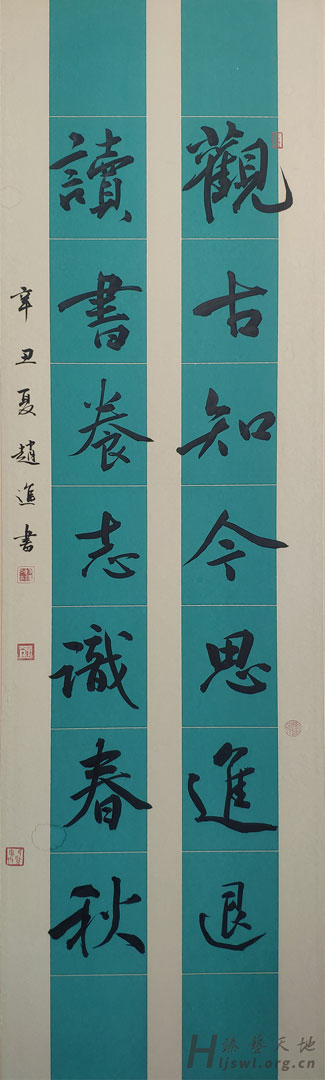 觀古知今思進退
讀書養志識春秋
辛丑夏趙進書
臻藝天地
Hljswl.org.cn